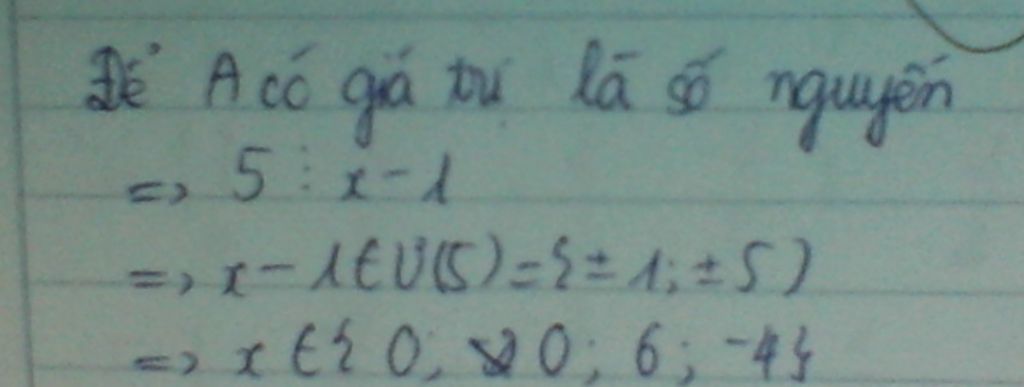 Để A có giá trị là số nguyên
=> 5 ⋮ x - 1
=> x - 1 ∈ Ư(5) = {± 1; ± 5}
=> x ∈ { 0; 0; 6; -4}